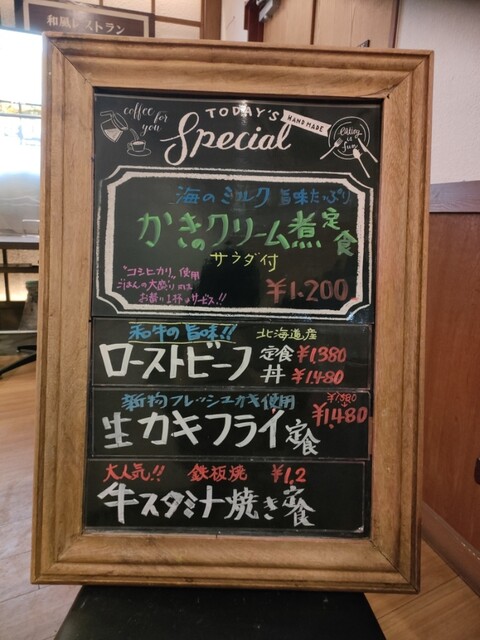 和風レストラン
coffee for you
TODAY'S
HANDMADE
Special
eating is fun
海のミルク 旨味たっぷり
かきのクリーム煮定食
サラダ付
"コシヒカリ"使用
ごはんの大盛り
お替り1杯サービス!!
¥1.200
和牛の旨味!! 北海道産
ローストビーフ 定食 ¥1,380
丼 ¥1.480
新物フレッシュカキ使用 ¥1380
生カキフライ定食 ¥1.480
大人気!! 鉄板焼 ¥1.2
牛スタミナ焼き定食